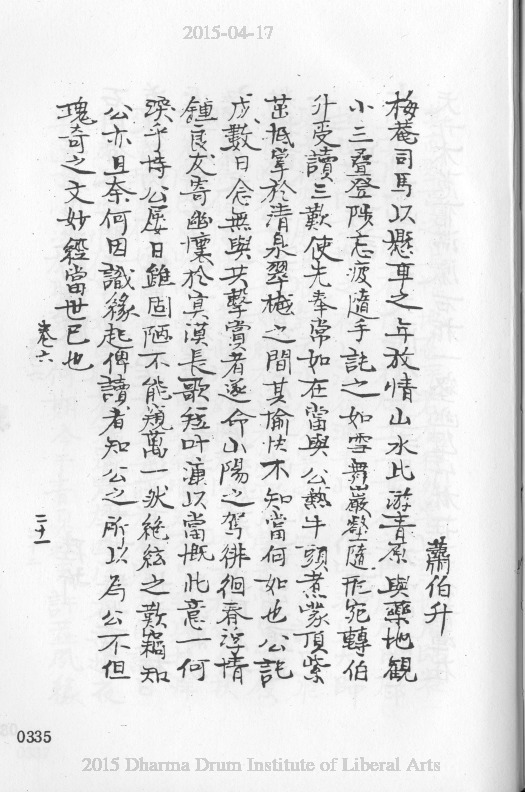 2015-04-17
蕭伯升
梅菴司馬以懸車之年放情山水此游青原與藥地觀
小三疊登陟忘疲隨手記之如雪舞巖壑隨形宛轉伯
升受讀三歎使先奉常如在當與公熱牛頭煮蒙頂紫
茁抵掌於清泉翠樾之間其愉快不知當何如也公記
成數日念無與共擊賞者遂命山陽之駕徘徊春浮情
鍾良友寄幽懷於冥漠長歌短叶淚以當慨此意一何
深乎恃公屢日雖固陋不能窺萬一狀絕絃之歎竊知
公亦且奈何因識緣起俾讀者知公之所以為公不但
瑰奇之文妙經當世已也
卷六
二十一
0335
2015 Dharma Drum Institute of Liberal Arts